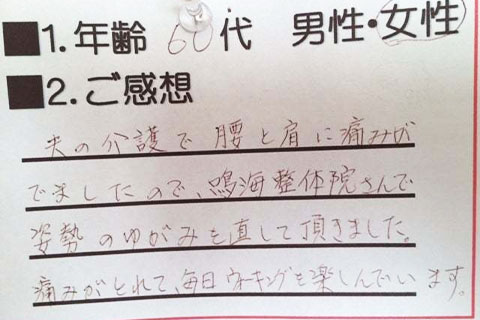 ■1.年齢 60代 男性・女性
■2.ご感想
夫の介護で腰と肩に痛みが
でましたので、鳴海整体院さんで
姿勢のゆがみを直して頂きました。
痛みがとれて、毎日ウォーキングを楽しんでいます。